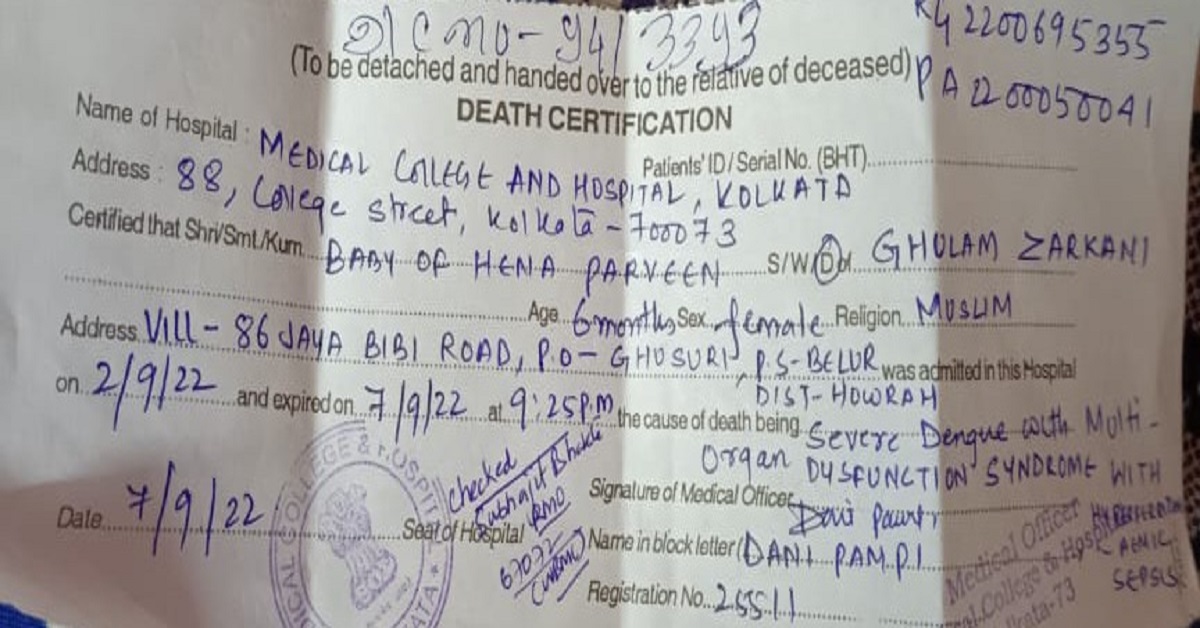 NO - 94/3393
RG 2200695355
(To be detached and handed over to the relative of deceased)
PA 2200050041
DEATH CERTIFICATION
Name of Hospital : MEDICAL COLLEGE AND HOSPITAL, KOLKATA
Patients' ID / Serial No. (BHT)
Address : 88, College street, Kolkata - 700073
Certified that Shri/Smt./Kum. BABY OF HENA PARVEEN S/W/D/of GHULAM ZARKANI
Age 6 months Sex female Religion MUSLIM
Address VILL - 86 JAYA BIBI ROAD, P.O - GHUSURI, P.S-BELUR was admitted in this Hospital
DIST-HOWRAH
on 2/9/22 and expired on 7/9/22 at 9:25 P.M the cause of death being Severe Dengue with Multi-
Organ DYSFUNCTION SYNDROME WITH
SEPSIS
Date 7/9/22
Seal of Hospital
checked
RMO
67072
(WBMC)
Signature of Medical Officer
Name in block letter (DANI PAMPI
Registration No. 25511
Medical Officer
College & Hospital
Kolkata-73